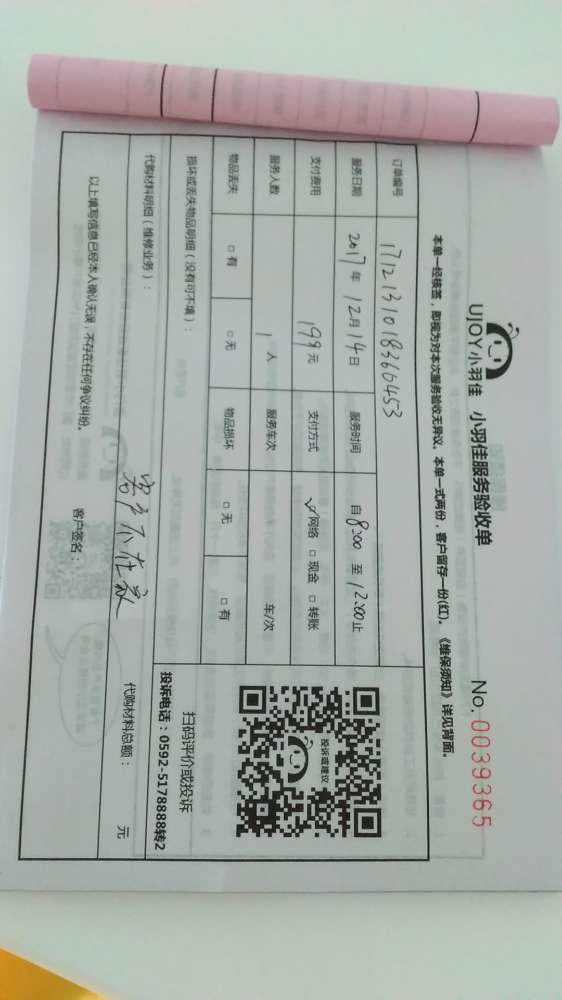 UJOY小羽佳 小羽佳服务验收单
No. 0039365
本单一经核签，即视为对本次服务验收无异议。本单一式两份，客户留存一份(红)。《维保须知》详见背面。
订单编号 1712131018360453
服务日期 2017年12月14日 服务时间 自8:00至12:00止
支付费用 199元 支付方式 ☑网络 □现金 □转账
服务人数 1人 服务车次 车/次
物品丢失 □有 □无 物品损坏 □无 □有
投诉或建议
扫码评价或投诉
投诉电话：0592-5178888转2
损坏或丢失物品明细（没有可不填）：
代购材料明细（维修业务）： 代购材料总额： 元
以上填写信息已经本人确认无误，不存在任何争议纠纷。
客户签名： 客户不在家